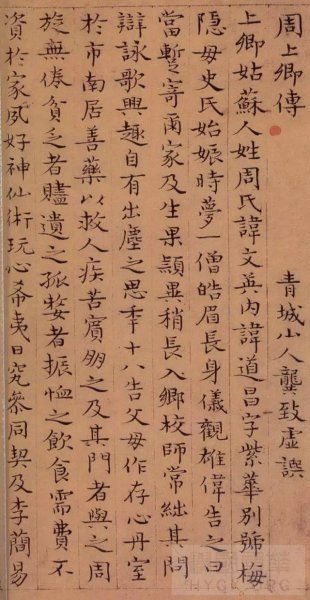 周上卿傳
青城山人龔致虛譔
上卿姑蘇人姓周氏諱文英內諱道昌字紫華別號梅
隱母史氏始娠時夢一僧皓眉長身儀觀雄偉告之曰
當蹔寄爾家及生果穎異稍長入鄉校師常絀其問
辯詠歌興趣自有出塵之思年十八告父母作存心丹室
於市南居善藥以救人疾苦賓朋之及其門者與之周
旋無倦貧乏者賑遺之孤嫠者振恤之飲食需費不
資於家夙好神仙術玩心希夷日究參同契及李簡易